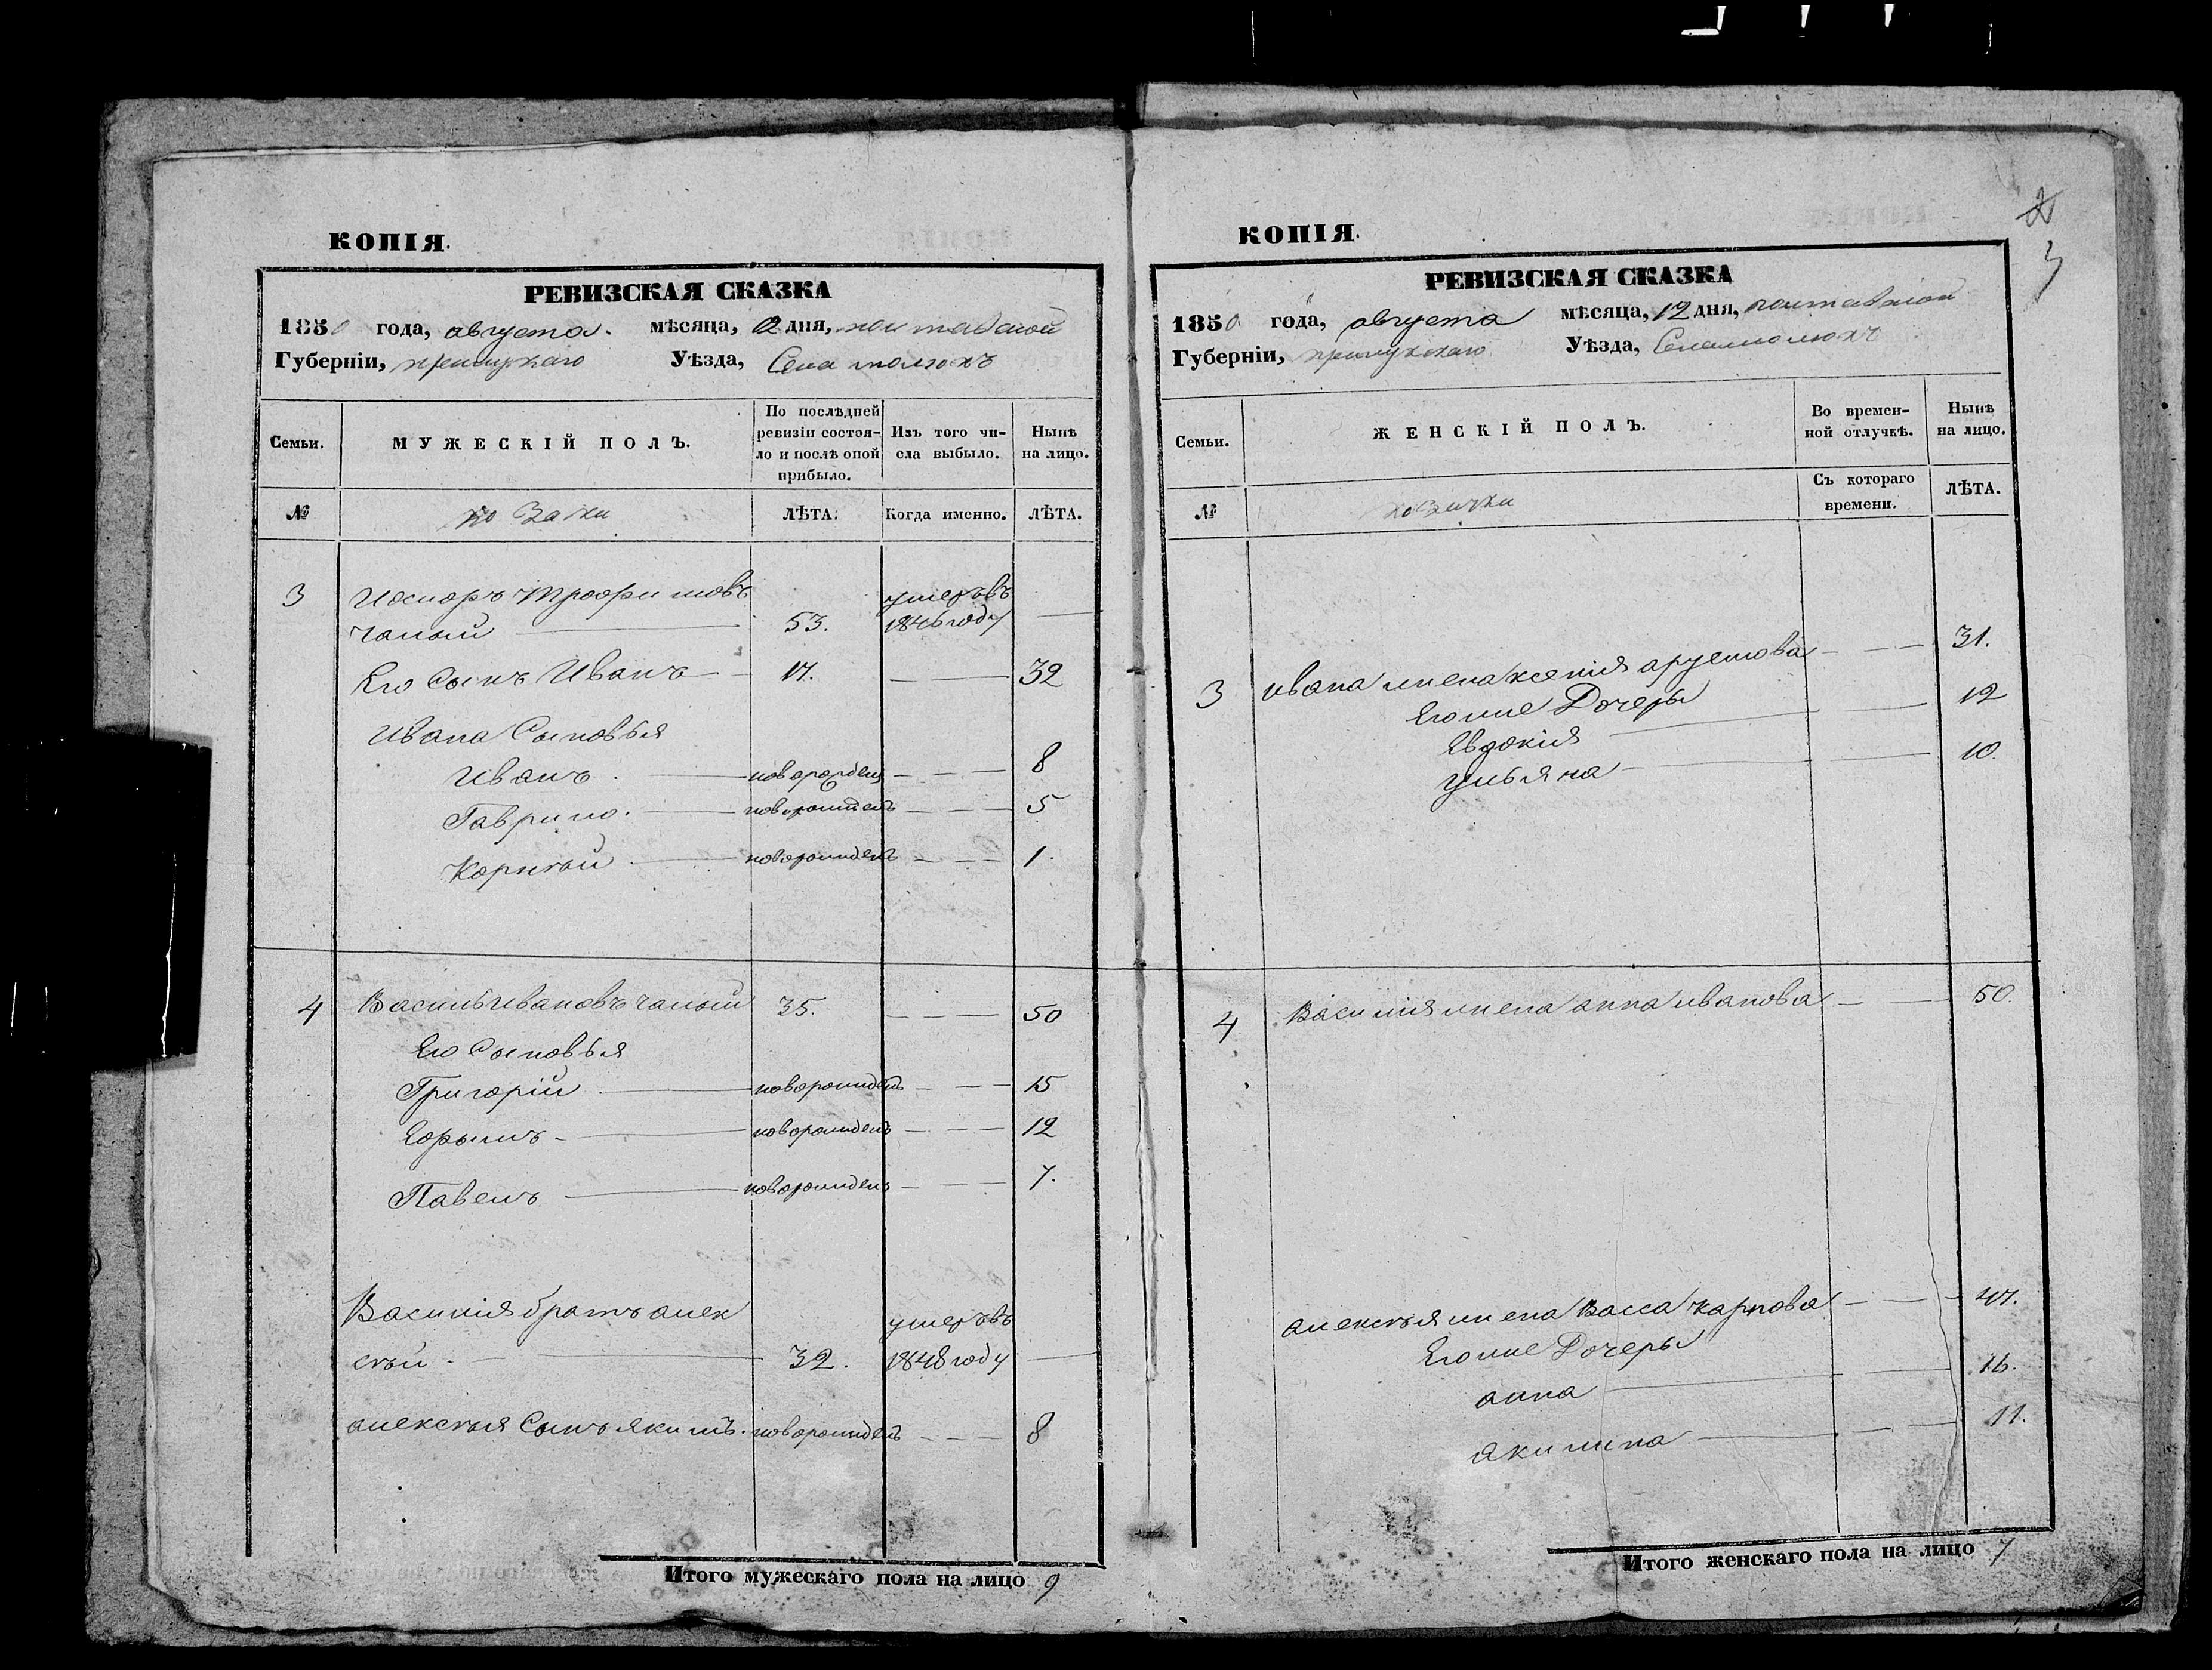 КОПІЯ.
РЕВИЗСКАЯ СКАЗКА
1850 года, августа. мѣсяца, 12 дня, полтавской
Губерніи, прилуцкаго Уѣзда, Села
Семьи.
МУЖЕСКІЙ ПОЛЪ.
По послѣдней ревизіи состоя-
ло и послѣ оной прибыло.
Изъ того чи-
сла выбыло.
Нынѣ на лицо.
№
ЛѢТА.
Когда именно.
ЛѢТА.
3 Трофимовъ умеръ въ
чалый 53. 1846 году
Его Сынъ Иванъ 17. 32
Ивана Сыновья
Иванъ. новорожден 8
Гаврило. новорожденъ 5
Корнѣй новорожденъ 1.
4 Василь Ивановъ чалый 35. 50
Его Сыновья
Григорій новорожденъ 15
новорожденъ 12
Павелъ новорожденъ 7.
Василия братъ алек умеръ въ
сѣй. 32. 1848 году
алексѣя Сынъ якимъ. новорожденъ 8
Итого мужескаго пола на лицо 9
КОПІЯ.
2
3
РЕВИЗСКАЯ СКАЗКА
1850 года, августа мѣсяца, 12 дня, полтавской
Губерніи, прилуцкаго Уѣзда,
Семьи.
ЖЕНСКІЙ ПОЛЪ.
Во времен-
ной отлучкѣ.
Нынѣ на лицо.
№
Съ котораго времени.
ЛѢТА.
3 ивана жена ксенія 31.
Его же Дочеры
Евдокія 12
ульяна 10.
4 Василія жена анна иванова 50.
алексѣя жена Васса карпова 47.
Его же Дочеры
анна 16.
акилина 11.
Итого женскаго пола на лицо 7